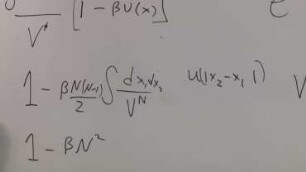 V [1 - βU(x)] e
1 - βN(N-1)/2 ∫ dx₁dx₂/V^N U(|x₂-x₁|) V
1 - βN²